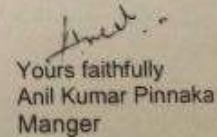 Yours faithfully
Anil Kumar Pinnaka
Manger